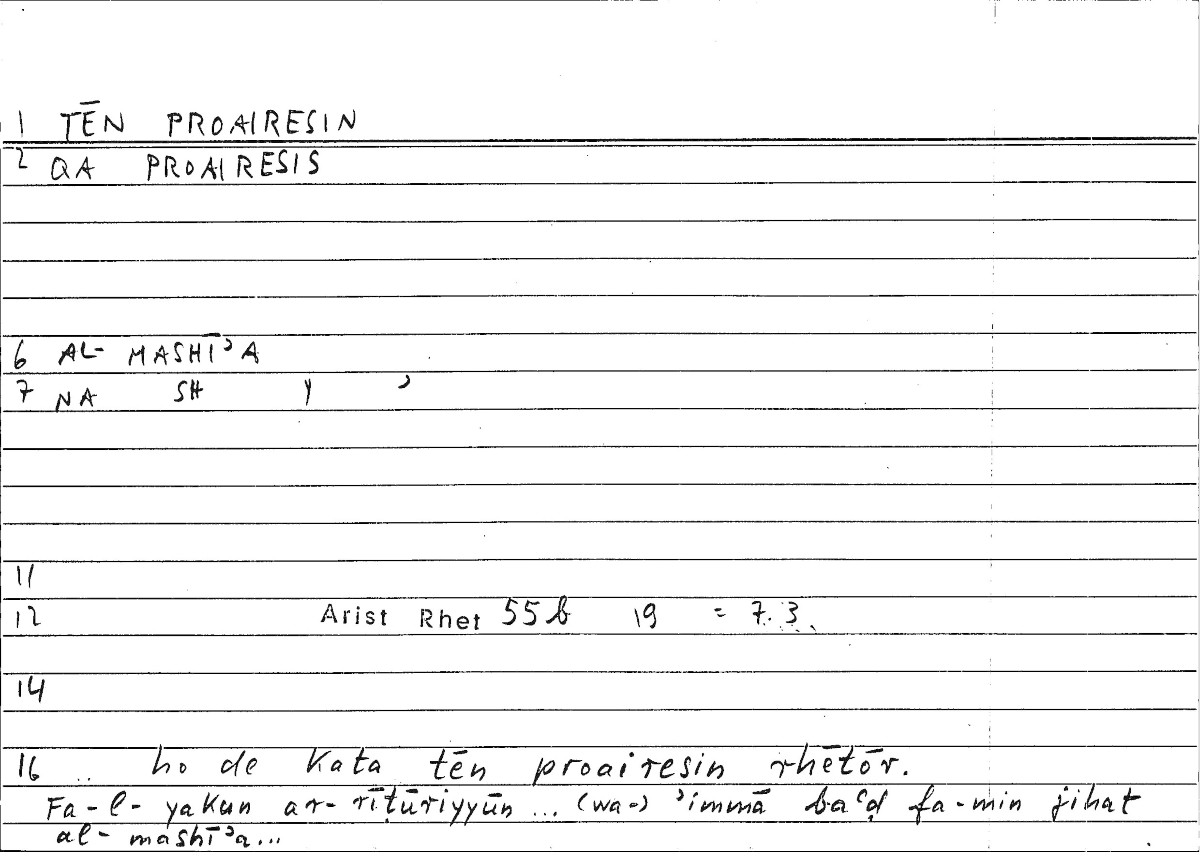 1 TĒN PROAIRESIN
2 QA PROAIRESIS
6 AL- MASHĪʾA
7 NA SH Y ʾ
11
12 Arist Rhet 55b 19 = 7.3
14
16 .. ho de kata tēn proairesin rhētōr.
Fa-l- yakun ar- rīṭūriyyūn ... (wa-) ʾimmā baʿḍ fa-min jihat
al- mashīʾa...